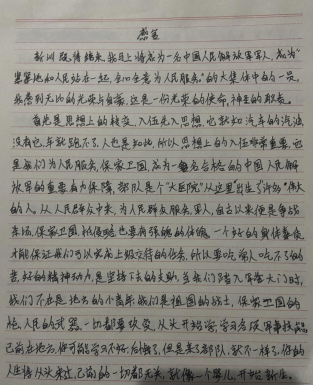 感言
新训既将结束,我马上将成为一名中国人民解放军军人,成为“
紧紧地和人民站在一起,全心全意为人民服务”的大集体中的一员,
我感到无比的光荣与自豪,这是一份光荣的使命,神圣的职责。
首先是思想上的转变,入伍先入思想,它就如汽车的汽油
没有它,车就跑不了,人也是如此,所以思想上的入伍非常重要,也
是我们为人民服务,保家卫国,成为一名合格的中国人民解
放军的重要有力保障,部队是个“大医院”从这里“出生”了许多“伟大
的人,从人民群众中来,为人民群众服务,军人,自古以来便是争战
沙场,保家卫国,抗侵略也要有强健的体魄,一个好的身体素质
才能保证我们可以完成上级交待的任务,所以要吃,常人吃不了的
苦,好的精神动力,是坚持下去的支助,当我们踏入军营大门时,
我们不在是地方的小青年我们是祖国的战士,保家卫国的
枪,人民的武器,一切都要改变,从头开始学,学习各项军事技能,
已前在地方,你可能学习不好,后悔了,但是来了部队,就不一样了,你的
人生将从来过,已前的一切都无关,就像一个婴儿,开始新生。